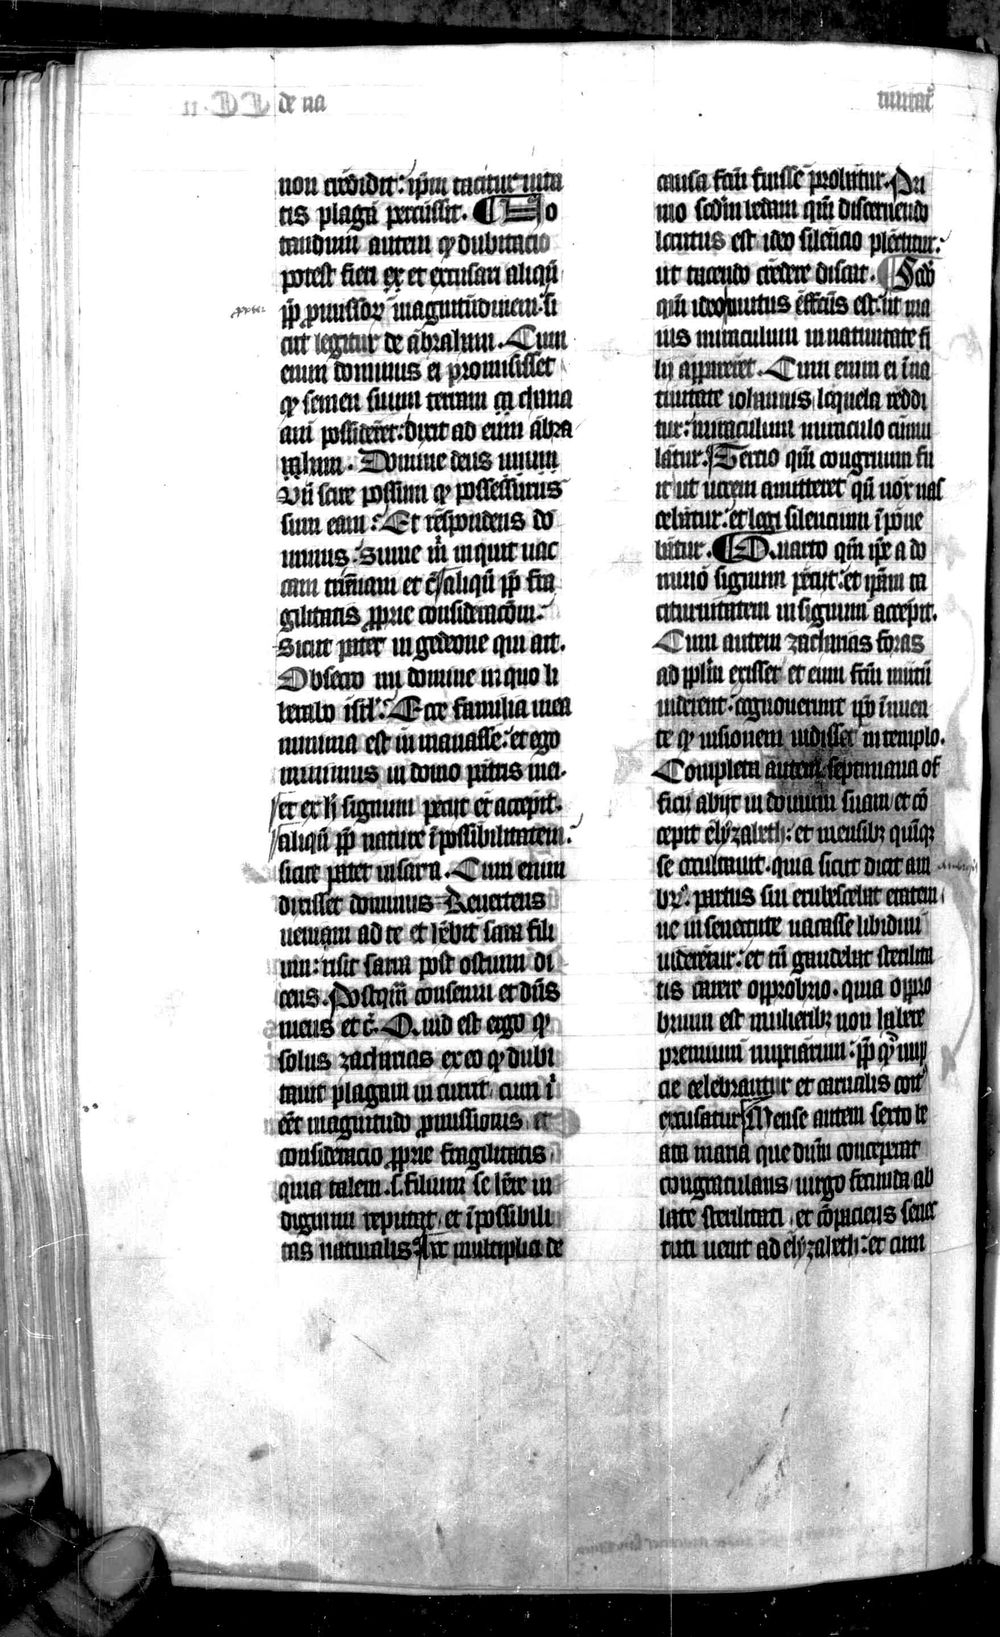 de na
tiuitate
non credidit: ipm taciturnita
tis plaga percussit. ¶ No
tandum autem qd dubitacio
potest fieri ex et excusari aliqn̄
pp̄ promissor̄ magnitudinem: si
cut legitur de abraham. Cum
enim dominus ei promisisset
qd semen suum terram chana
an possideret: dixit ad eum abra
ham. Domine deus unum
scire possim qd possessurus
sum eam: Et respondens do
minus. Sume m̄ inquit uac
cam triennam et c̄ aliqn̄ pp̄ fra
gilitatis pprie consideracōm.
Sicut patet in gedeone qui ait.
Obsecro mi domine in quo li
berabo isrl. Ecce familia mea
minima est in manasse: et ego
minimus in domo patris mei.
et ex h̄ signum petijt et accepit.
aliqn̄ pp̄ nature īpossibilitatem:
sicut patet in sara. Cum enim
dixisset dominus Reuertens
ueniam ad te et hēbit sara fili
um: risit sara post ostium di
cens. Postqm̄ consenui et dn̄s
meus et c̄. Quid est ergo qd
solus zacharias ex eo qd dubi
tauit plagam in currit cum ī
eēt magnitudo promissionis et
consideracio pprie fragilitatis
quia talem .s. filium se hēre in
dignum reputat et īpossibili
tas naturalis. multiplici de
causa fcm̄ fuisse probatur. Pri
mo scdm bedam qm̄ discernendo
locutus est ideo silencio plectitur:
ut tacendo credere discat. ¶ Scdo
qm̄ ideo mutus effcus est: ut ma
ius miraculum in natiuitate fi
lij appareret. Cum enim ei in na
tiuitate iohannis loquela reddi
tur: miraculum miraculo cumu
latur. Tercio qm̄ congruum fu
it ut uocem amitteret qn̄ uox nas
cebatur: et legi silencium īpone
batur. ¶ Quarto qm̄ ipe a do
mino signum petijt: et ipam ta
citurnitatem in signum accepit.
Cum autem zacharias foras
ad pplm exisset et eum fcm̄ mutū
uiderent: cognouerunt
qd uisionem uidisset in templo.
Completa autem septimana of
ficij abijt in domum suam et cō
cepit elyzabeth: et mensibz quīqz
se occultauit. quia sicut dicit am
br̄. partus sui erubescebat etatem
ne in senectute uacasse libidini
uideretur: et tn̄ gaudebat sterilita
tis carere opprobrio. quia oppro
brium est mulieribz non habere
premium nupciarum: pp̄ qd nup
cie celebrantur et carnalis coit
excusatur. Mense autem sexto be
ata maria que dnm̄ conceperat
congratulans uirgo fecunda ab
late sterilitati et cōpaciens senec
tuti uenit ad elyzabeth: et cum